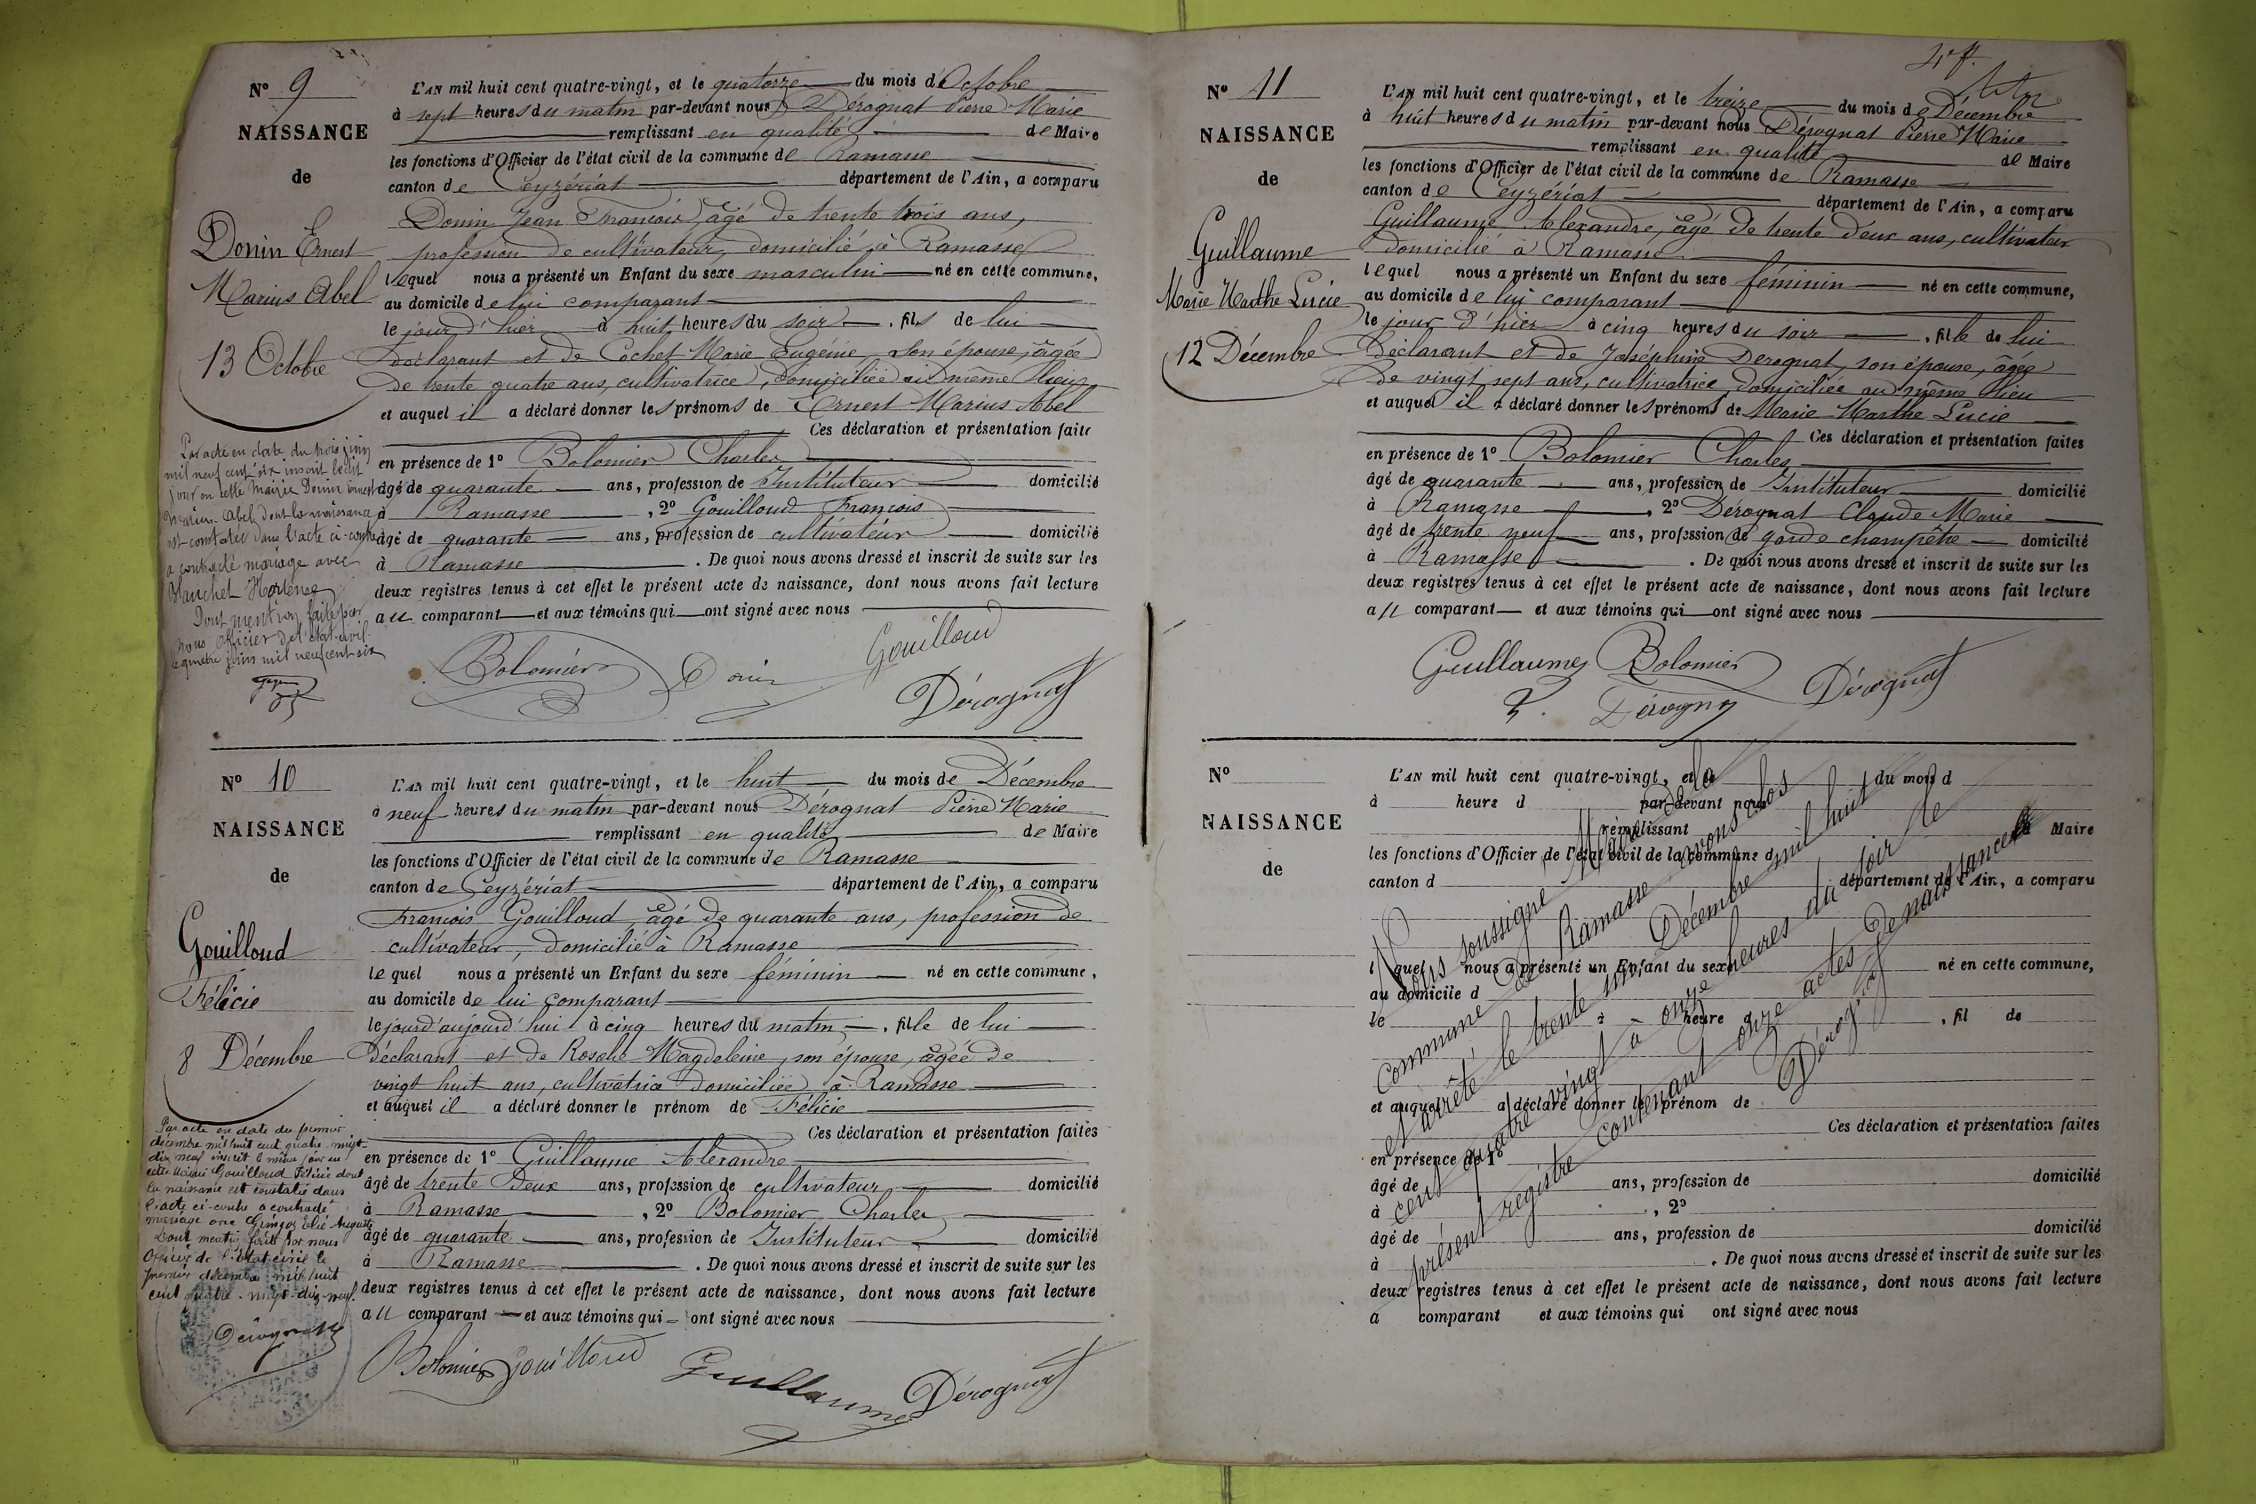 N° 9
NAISSANCE
de
Donin Ernest
Marius Abel
13 Octobre
L'AN mil huit cent quatre-vingt, et le quatorze du mois d'Octobre
à sept heures du matin par-devant nous Dérognat Pierre Marie
remplissant en qualité de Maire
les fonctions d'Officier de l'état civil de la commune de Ramasse
canton de Ceyzériat département de l'Ain, a comparu
Donin Jean François âgé de trente trois ans,
profession de cultivateur, domicilié à Ramasse
lequel nous a présenté un Enfant du sexe masculin né en cette commune,
au domicile de lui comparant
le jour d'hier à huit heures du soir, fils de lui
déclarant et de Cochet Marie Eugénie, son épouse, âgée
de trente quatre ans, cultivatrice, domiciliée au même lieu
et auquel il a déclaré donner les prénoms de Ernest Marius Abel
Ces déclaration et présentation faite
en présence de 1° Bolomier Charles
âgé de quarante ans, profession de Instituteur domicilié
à Ramasse, 2° Gouilloud François
âgé de quarante ans, profession de cultivateur domicilié
à Ramasse. De quoi nous avons dressé et inscrit de suite sur les
deux registres tenus à cet effet le présent acte de naissance, dont nous avons fait lecture
au comparant et aux témoins qui ont signé avec nous
Bolomier Donin Gouilloud
Dérognat
Par acte en date du trois juin
mil neuf cent six inscrit le dit
jour en cette Mairie Donin Ernest
Marius Abel dont la naissance
est constatée dans l'acte ci-contre
a contracté mariage avec
Blanchet Hortense
Dont mention faite par
nous officier de l'état-civil
le quatre juin mil neuf cent six
N° 10
NAISSANCE
de
Gouilloud
Félicie
8 Décembre
L'AN mil huit cent quatre-vingt, et le huit du mois de Décembre
à neuf heures du matin par-devant nous Dérognat Pierre Marie
remplissant en qualité de Maire
les fonctions d'Officier de l'état civil de la commune de Ramasse
canton de Ceyzériat département de l'Ain, a comparu
François Gouilloud âgé de quarante ans, profession de
cultivateur, domicilié à Ramasse
lequel nous a présenté un Enfant du sexe féminin né en cette commune,
au domicile de lui comparant
le jourd'aujourd'hui à cinq heures du matin, fille de lui
déclarant et de Rosalie Magdeleine, son épouse, âgée de
vingt huit ans, cultivatrice domiciliée à Ramasse
et auquel il a déclaré donner le prénom de Félicie
Ces déclaration et présentation faites
en présence de 1° Guillaume Alexandre
âgé de trente deux ans, profession de cultivateur domicilié
à Ramasse, 2° Bolomier Charles
âgé de quarante ans, profession de Instituteur domicilié
à Ramasse. De quoi nous avons dressé et inscrit de suite sur les
deux registres tenus à cet effet le présent acte de naissance, dont nous avons fait lecture
au comparant et aux témoins qui ont signé avec nous
Bolomier Gouilloud Guillaume Dérognat
Par acte en date du premier
décembre mil huit cent quatre-vingt-
dix neuf inscrit le même jour en
cette Mairie Gouilloud Félicie dont
la naissance est constatée dans
l'acte ci-contre a contracté
mariage avec Elie Auguste
Dont mention faite par nous
Officier de l'état civil le
premier décembre mil huit
cent quatre-vingt-dix-neuf.
Dérognat
4e f.
N° 11
NAISSANCE
de
Guillaume
Marie Marthe Lucie
12 Décembre
L'AN mil huit cent quatre-vingt, et le treize du mois de Décembre
à huit heures du matin par-devant nous Dérognat Pierre Marie
remplissant en qualité de Maire
les fonctions d'Officier de l'état civil de la commune de Ramasse
canton de Ceyzériat département de l'Ain, a comparu
Guillaume Alexandre, âgé de trente deux ans, cultivateur
domicilié à Ramasse
lequel nous a présenté un Enfant du sexe féminin né en cette commune,
au domicile de lui comparant
le jour d'hier à cinq heures du soir, fille de lui
déclarant et de Joséphine Derognat, son épouse, âgée
de vingt sept ans, cultivatrice, domiciliée au même lieu
et auquel il a déclaré donner les prénoms de Marie Marthe Lucie
Ces déclaration et présentation faites
en présence de 1° Bolomier Charles
âgé de quarante ans, profession de Instituteur domicilié
à Ramasse, 2° Derognat Claude Marie
âgé de trente neuf ans, profession de garde champêtre domicilié
à Ramasse. De quoi nous avons dressé et inscrit de suite sur les
deux registres tenus à cet effet le présent acte de naissance, dont nous avons fait lecture
au comparant et aux témoins qui ont signé avec nous
Guillaume Bolomier
Dérognat Dérognat
N°
NAISSANCE
de
L'AN mil huit cent quatre-vingt, et le du mois d
à heure d par-devant nous
remplissant Maire
les fonctions d'Officier de l'état civil de la commune d
canton d département de l'Ain, a comparu
l quel nous a présenté un Enfant du sexe né en cette commune,
au domicile d
le à heure d , fil de
et auquel a déclaré donner le prénom de
Ces déclaration et présentation faites
en présence de 1°
âgé de ans, profession de domicilié
à , 2°
âgé de ans, profession de domicilié
à . De quoi nous avons dressé et inscrit de suite sur les
deux registres tenus à cet effet le présent acte de naissance, dont nous avons fait lecture
a comparant et aux témoins qui ont signé avec nous
Nous soussigné Maire de la
commune de Ramasse avons clos
et arrêté le trente un Décembre mil huit
cent quatre vingt à onze heures du soir le
présent registre contenant onze actes de naissance
Dérognat